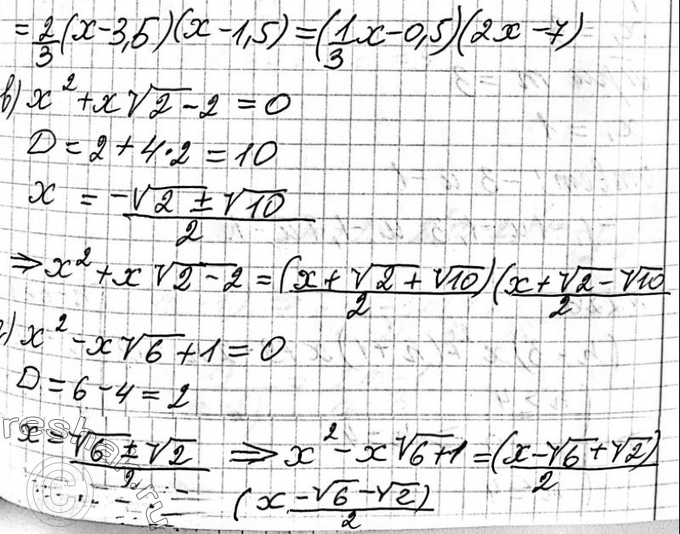 = 2/3 (x-3,5)(x-1,5) = (1/3 x-0,5)(2x-7)
в) x² + x√2 - 2 = 0
D = 2 + 4·2 = 10
x = (-√2 ± √10)/2
⇒ x² + x√2-2 = (x + (√2 + √10)/2)(x + (√2 - √10)/2
г) x² - x√6 + 1 = 0
D = 6 - 4 = 2
x = (√6 ± √2)/2 ⇒ x² - x√6+1 = (x - (√6 + √2)/2)
(x (-√6 - √2)/2)